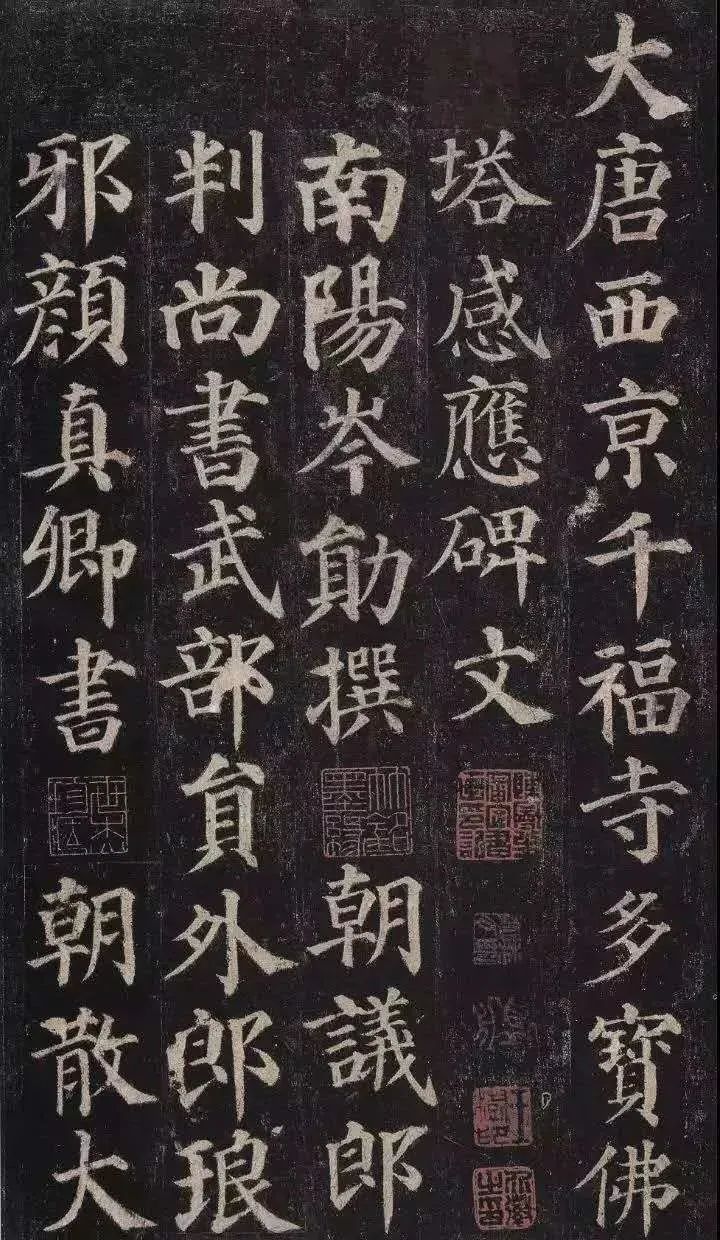 大唐西京千福寺多寳佛
塔感應碑文
南陽岑勛撰 朝議郎
判尚書武部貟外郎琅
邪顏真卿書 朝散大